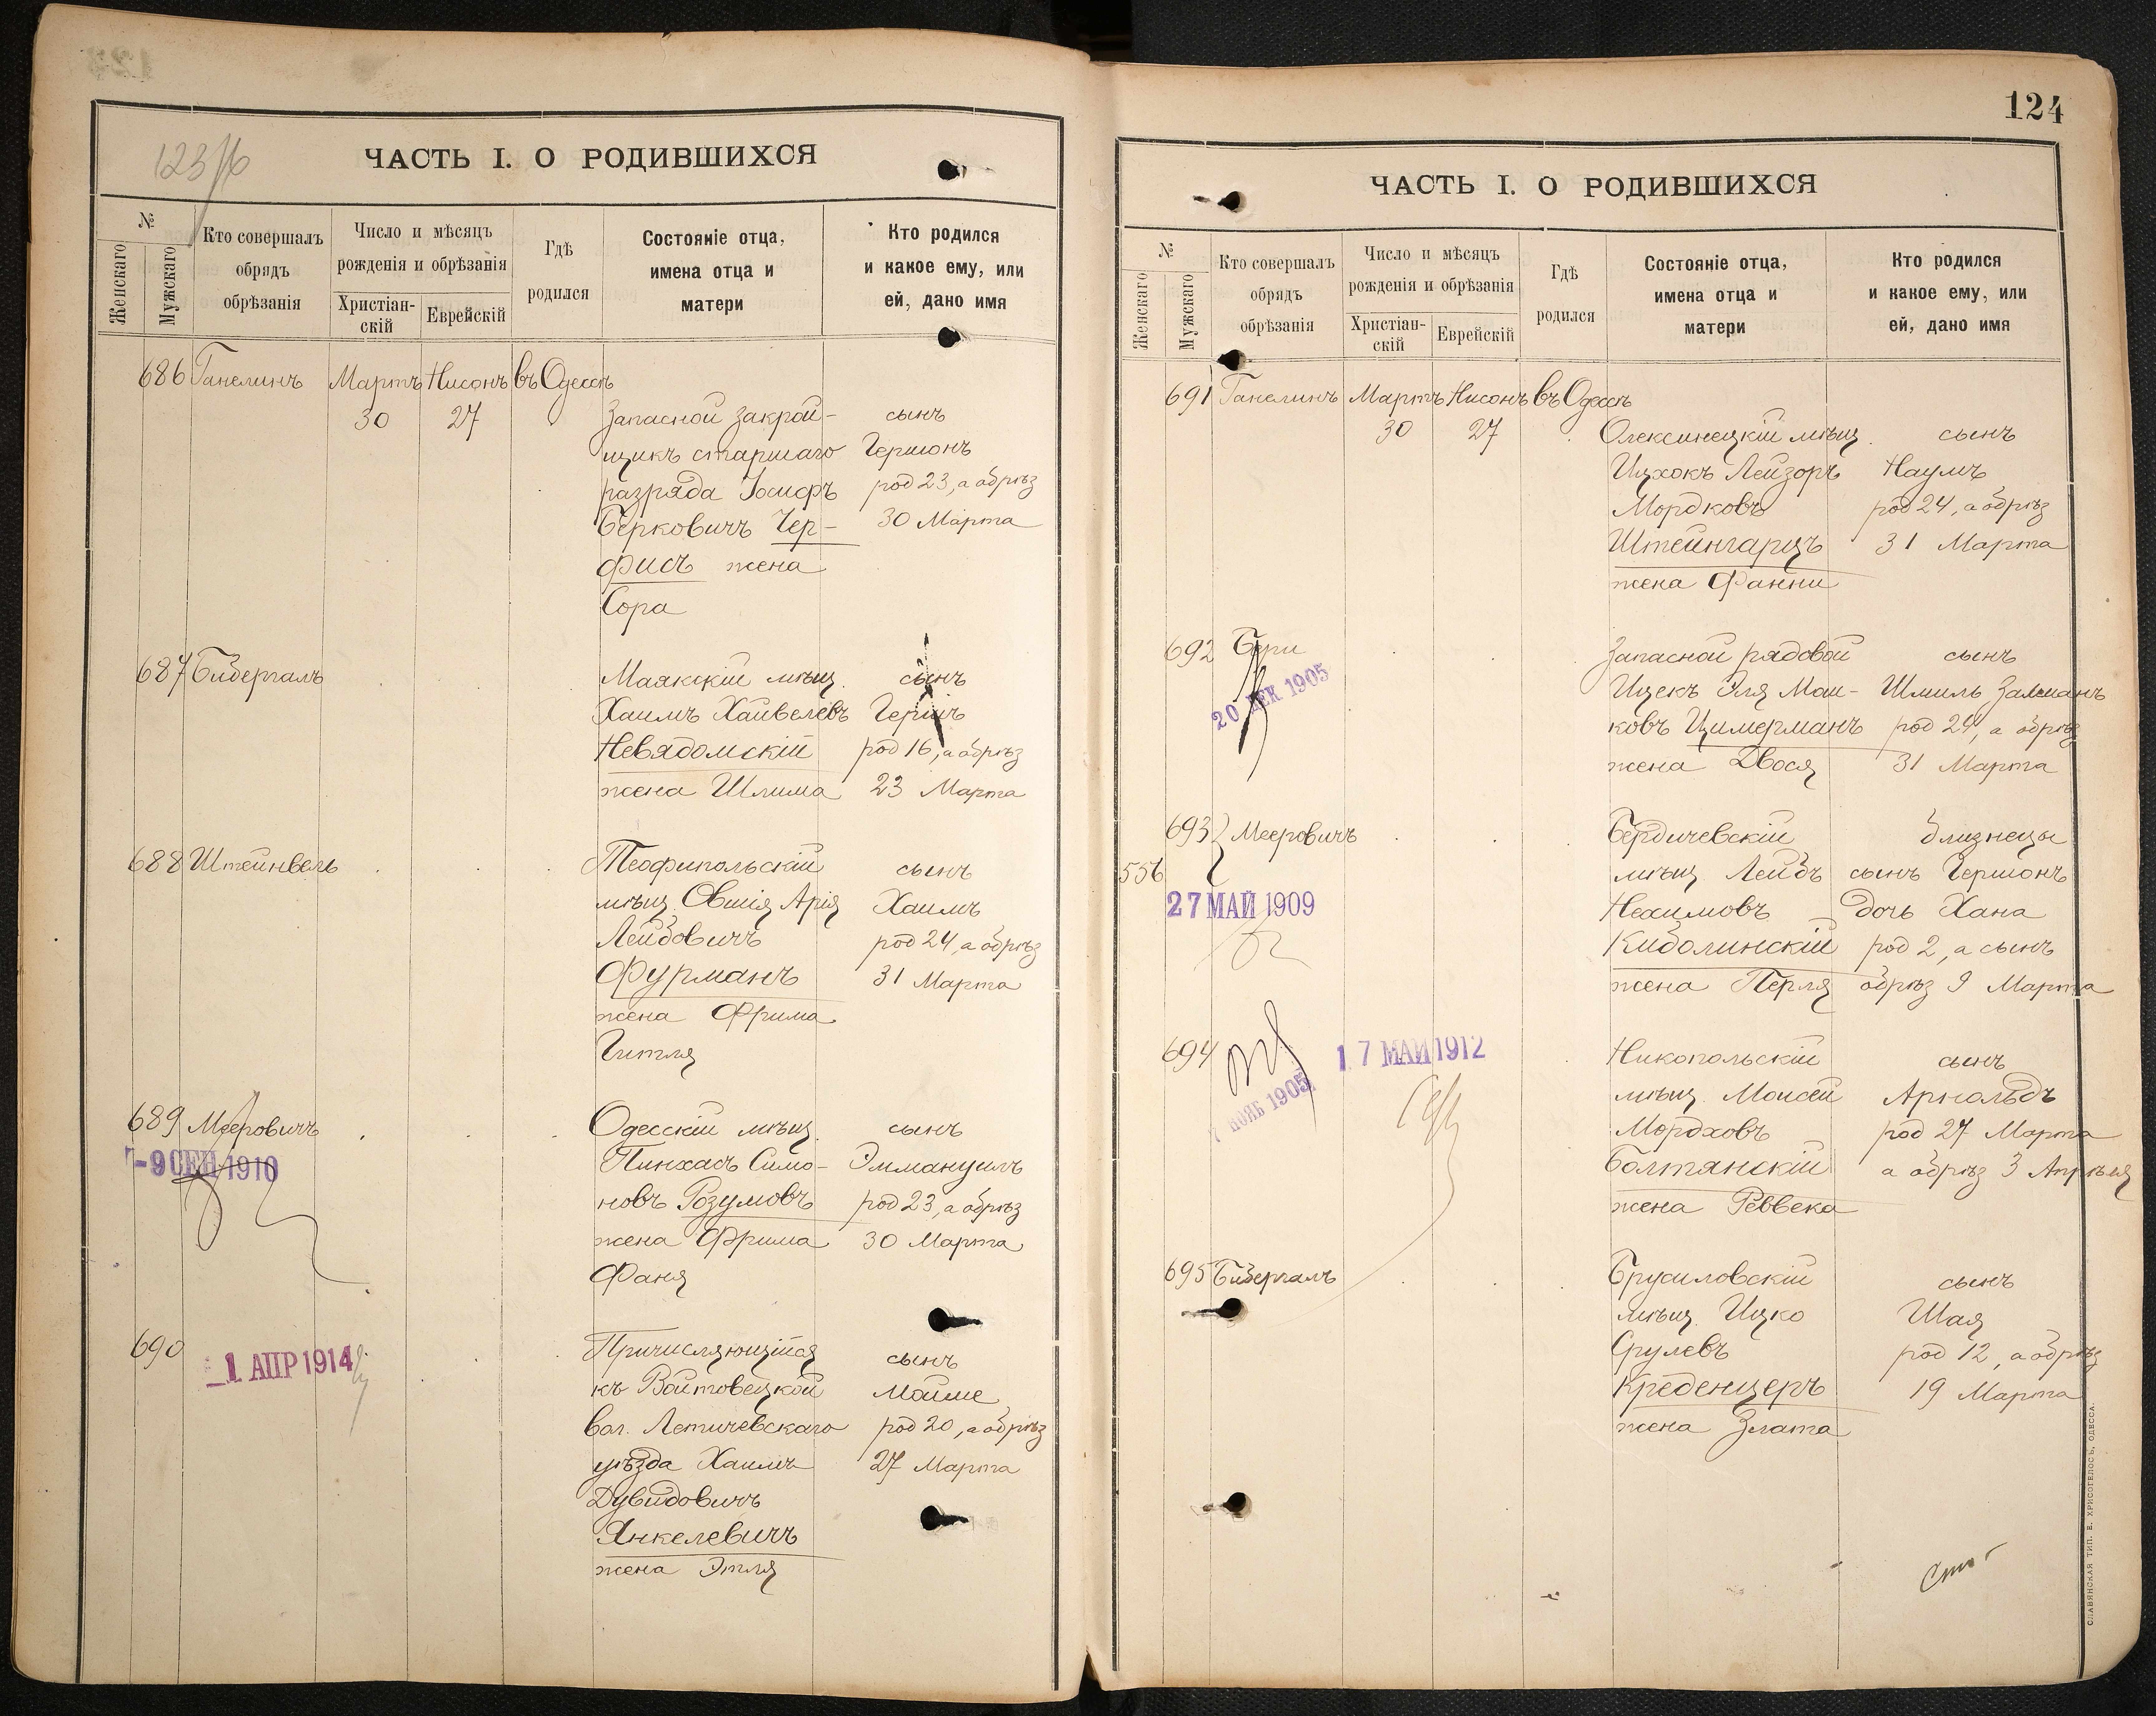 123/6
ЧАСТЬ I. О РОДИВШИХСЯ
№
Женскаго
Мужскаго
Кто совершалъ
обрядъ
обрѣзанія
Число и мѣсяцъ
рожденія и обрѣзанія
Христіан-
скій
Еврейскій
Гдѣ
родился
Состояніе отца,
имена отца и
матери
Кто родился
и какое ему, или
ей, дано имя
686 Ганелинъ Мартъ Нисонъ въ Одессѣ
30 27 Запасной закрой- сынъ
щикъ старшаго Гершонъ
разряда Іосифъ род 23, а обрѣз
Берковичъ Чер- 30 Марта
фисъ жена
Сора
687 Бибергалъ Маякскій мѣщ. сынъ
Хаимъ Хайвелевъ Гершъ
Невядомскій род 16, а обрѣз
жена Шлима 23 Марта
688 Штейнвель Теофипольскій сынъ
мѣщ. Овшія Арія Хаимъ
Лейбовичъ род 24, а обрѣз
Фурманъ 31 Марта
жена Фрима
Гитля
689 Мееровичъ Одесскій мѣщ. сынъ
-9 СЕН 1910 Пинхасъ Симо- Эммануилъ
новъ Розумовъ род 23, а обрѣз
жена Фрима 30 Марта
Фаня
690 Причисляющійся сынъ
1 АПР 1914 къ Войтовецкой Мойше
вол. Летичевскаго род 20, а обрѣз
уѣзда Хаимъ 27 Марта
Дувидовичъ
Янкелевичъ
жена Этля
124
ЧАСТЬ I. О РОДИВШИХСЯ
№
Женскаго
Мужскаго
Кто совершалъ
обрядъ
обрѣзанія
Число и мѣсяцъ
рожденія и обрѣзанія
Христіан-
скій
Еврейскій
Гдѣ
родился
Состояніе отца,
имена отца и
матери
Кто родился
и какое ему, или
ей, дано имя
691 Ганелинъ Мартъ Нисонъ въ Одессѣ
30 27 Олексинецкій мѣщ. сынъ
Ицхокъ Лейзоръ Наумъ
Мордковъ род 24, а обрѣз
Штейнгарцъ 31 Марта
жена Фанни
692 Запасной рядовой сынъ
20 ДЕК 1905 Ицекъ Эля Мош- Шмиль Залманъ
ковъ Цимерманъ род 24, а обрѣз
жена Двося 31 Марта
693 Мееровичъ Бердичевскій близнецы
556 мѣщ. Лейбъ сынъ Гершонъ
27 МАЙ 1909 Нехимовъ дочь Хана
род 2, а сынъ
жена Перля обрѣз 9 Марта
694 17 МАЙ 1912 Никопольскій сынъ
7 НОЯБ 1905 мѣщ. Моисей Арнольдъ
Мордховъ род 27 Марта
Болтянскій а обрѣз 3 Апрѣля
жена Реввека
695 Бибергалъ Брусиловскій сынъ
мѣщ. Ицко Шая
Срулевъ род 12, а обрѣз
Креденцеръ 19 Марта
жена Злата
СЛАВЯНСКАЯ ТИП. Е. ХРИСОГЕЛОСЪ, ОДЕССА.